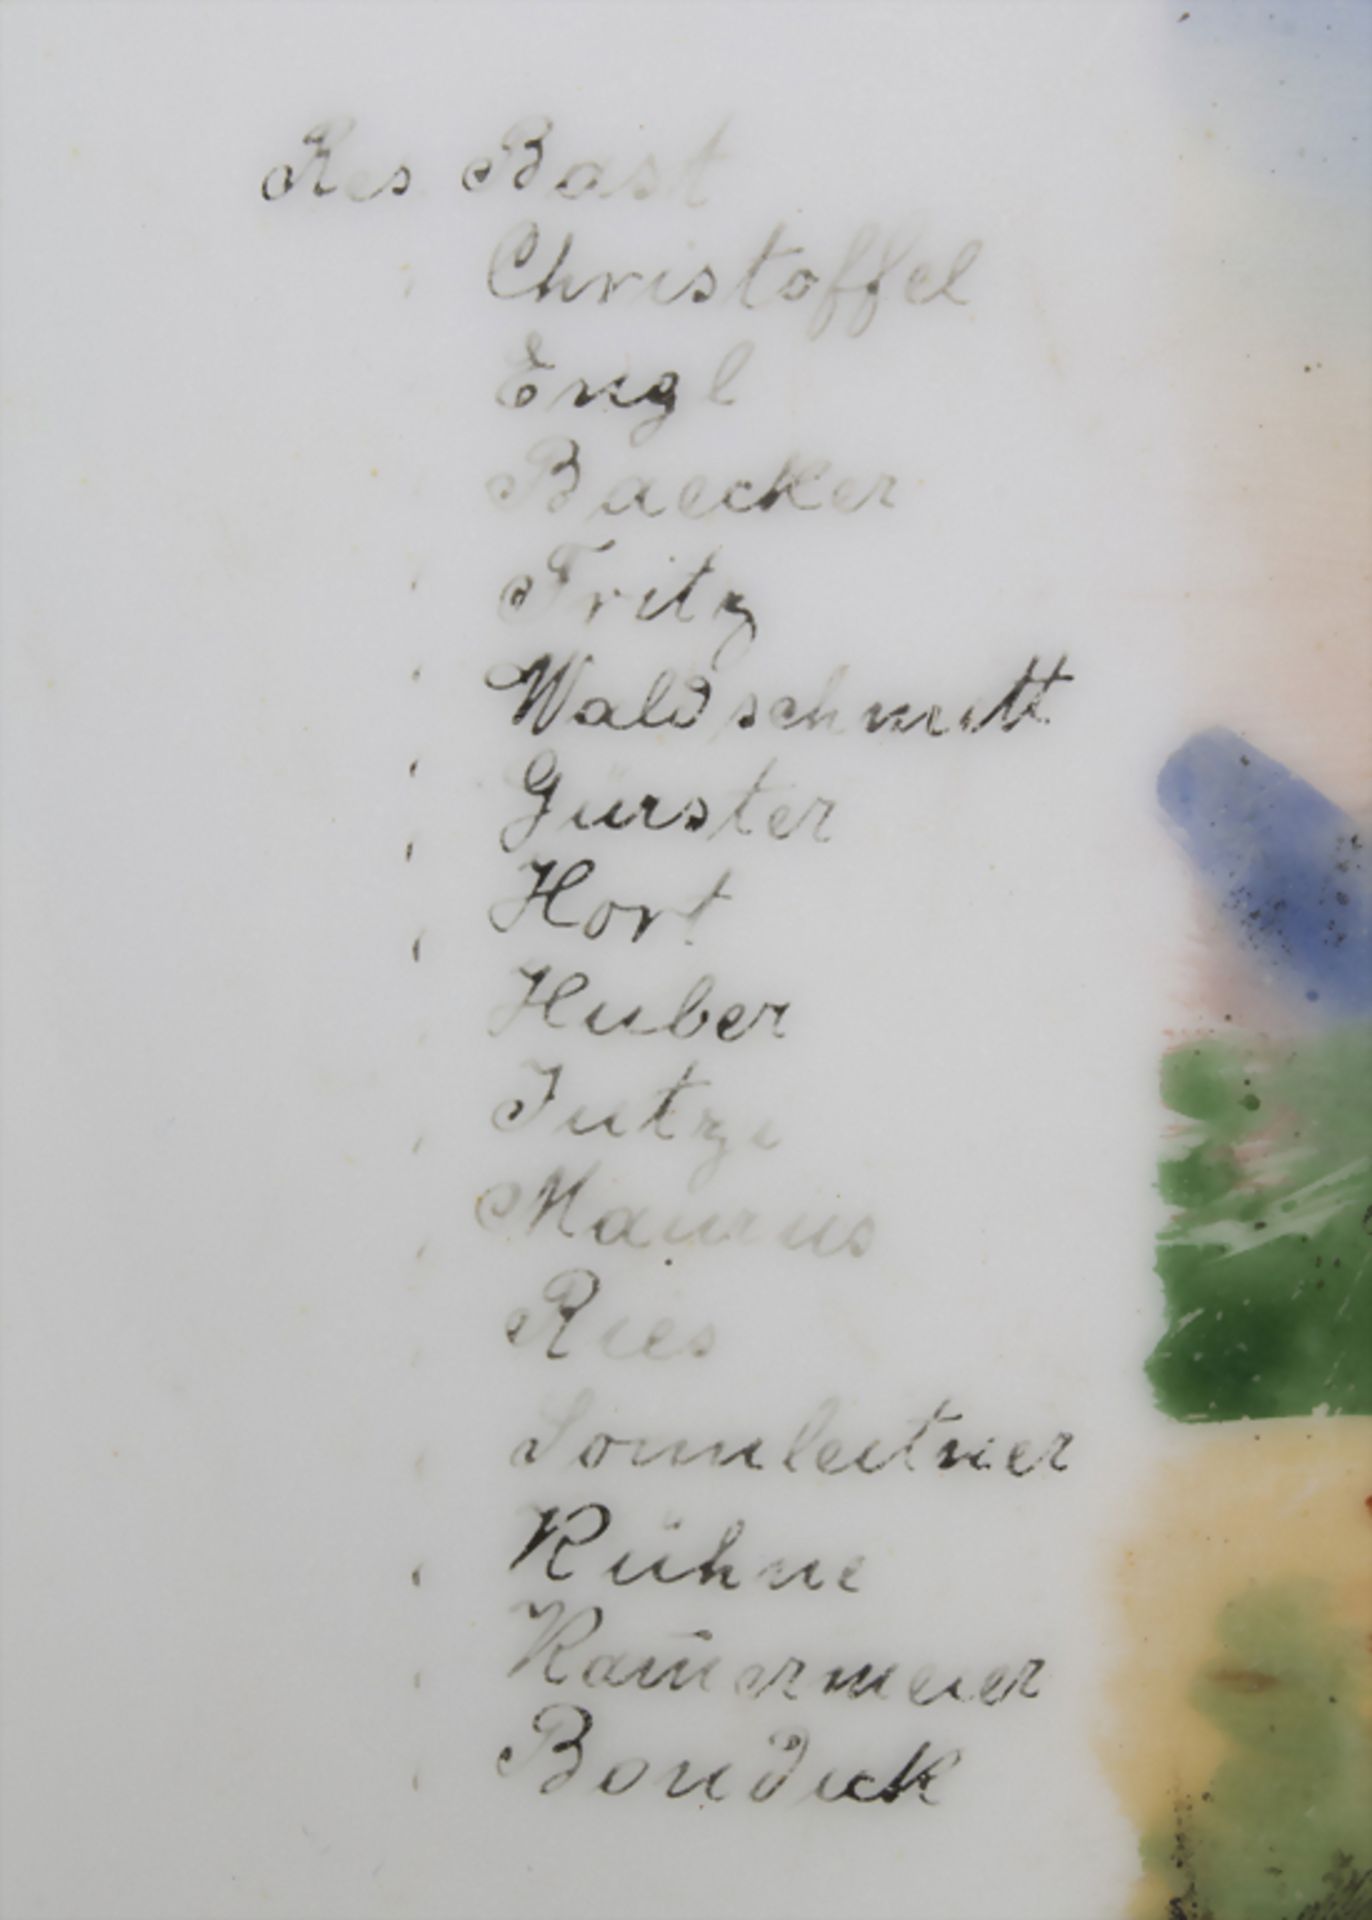 Res Bast
Christoffel
Engl
Baecker
Fritz
Waldschmitt
Gürster
Hort
Huber
Jutzi
Maurus
Ries
Sonnleitner
Kühne
Kam̄ermeier